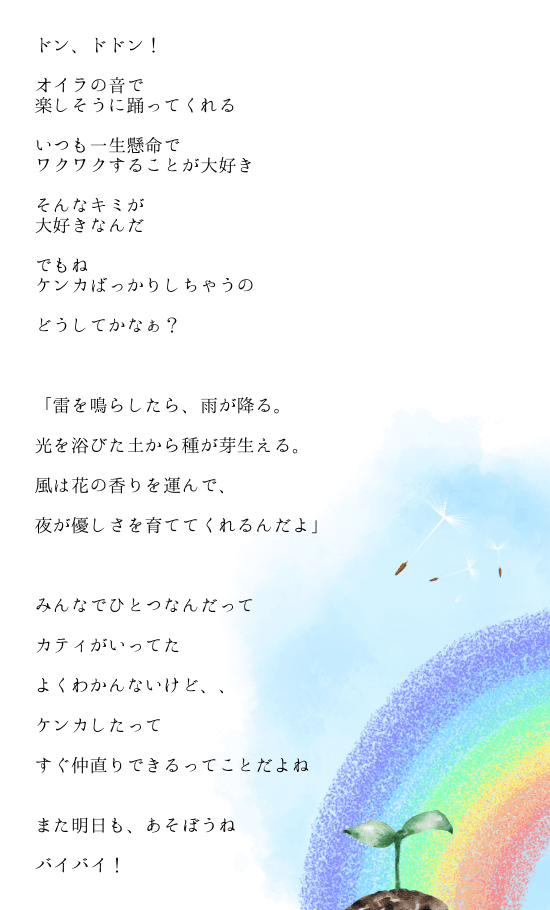 ドン、ドドン！
オイラの音で
楽しそうに踊ってくれる
いつも一生懸命で
ワクワクすることが大好き
そんなキミが
大好きなんだ
でもね
ケンカばっかりしちゃうの
どうしてかなぁ？
「雷を鳴らしたら、雨が降る。
光を浴びた土から種が芽生える。
風は花の香りを運んで、
夜が優しさを育ててくれるんだよ」
みんなでひとつなんだって
カティがいってた
よくわかんないけど、、
ケンカしたって
すぐ仲直りできるってことだよね
また明日も、あそぼうね
バイバイ！